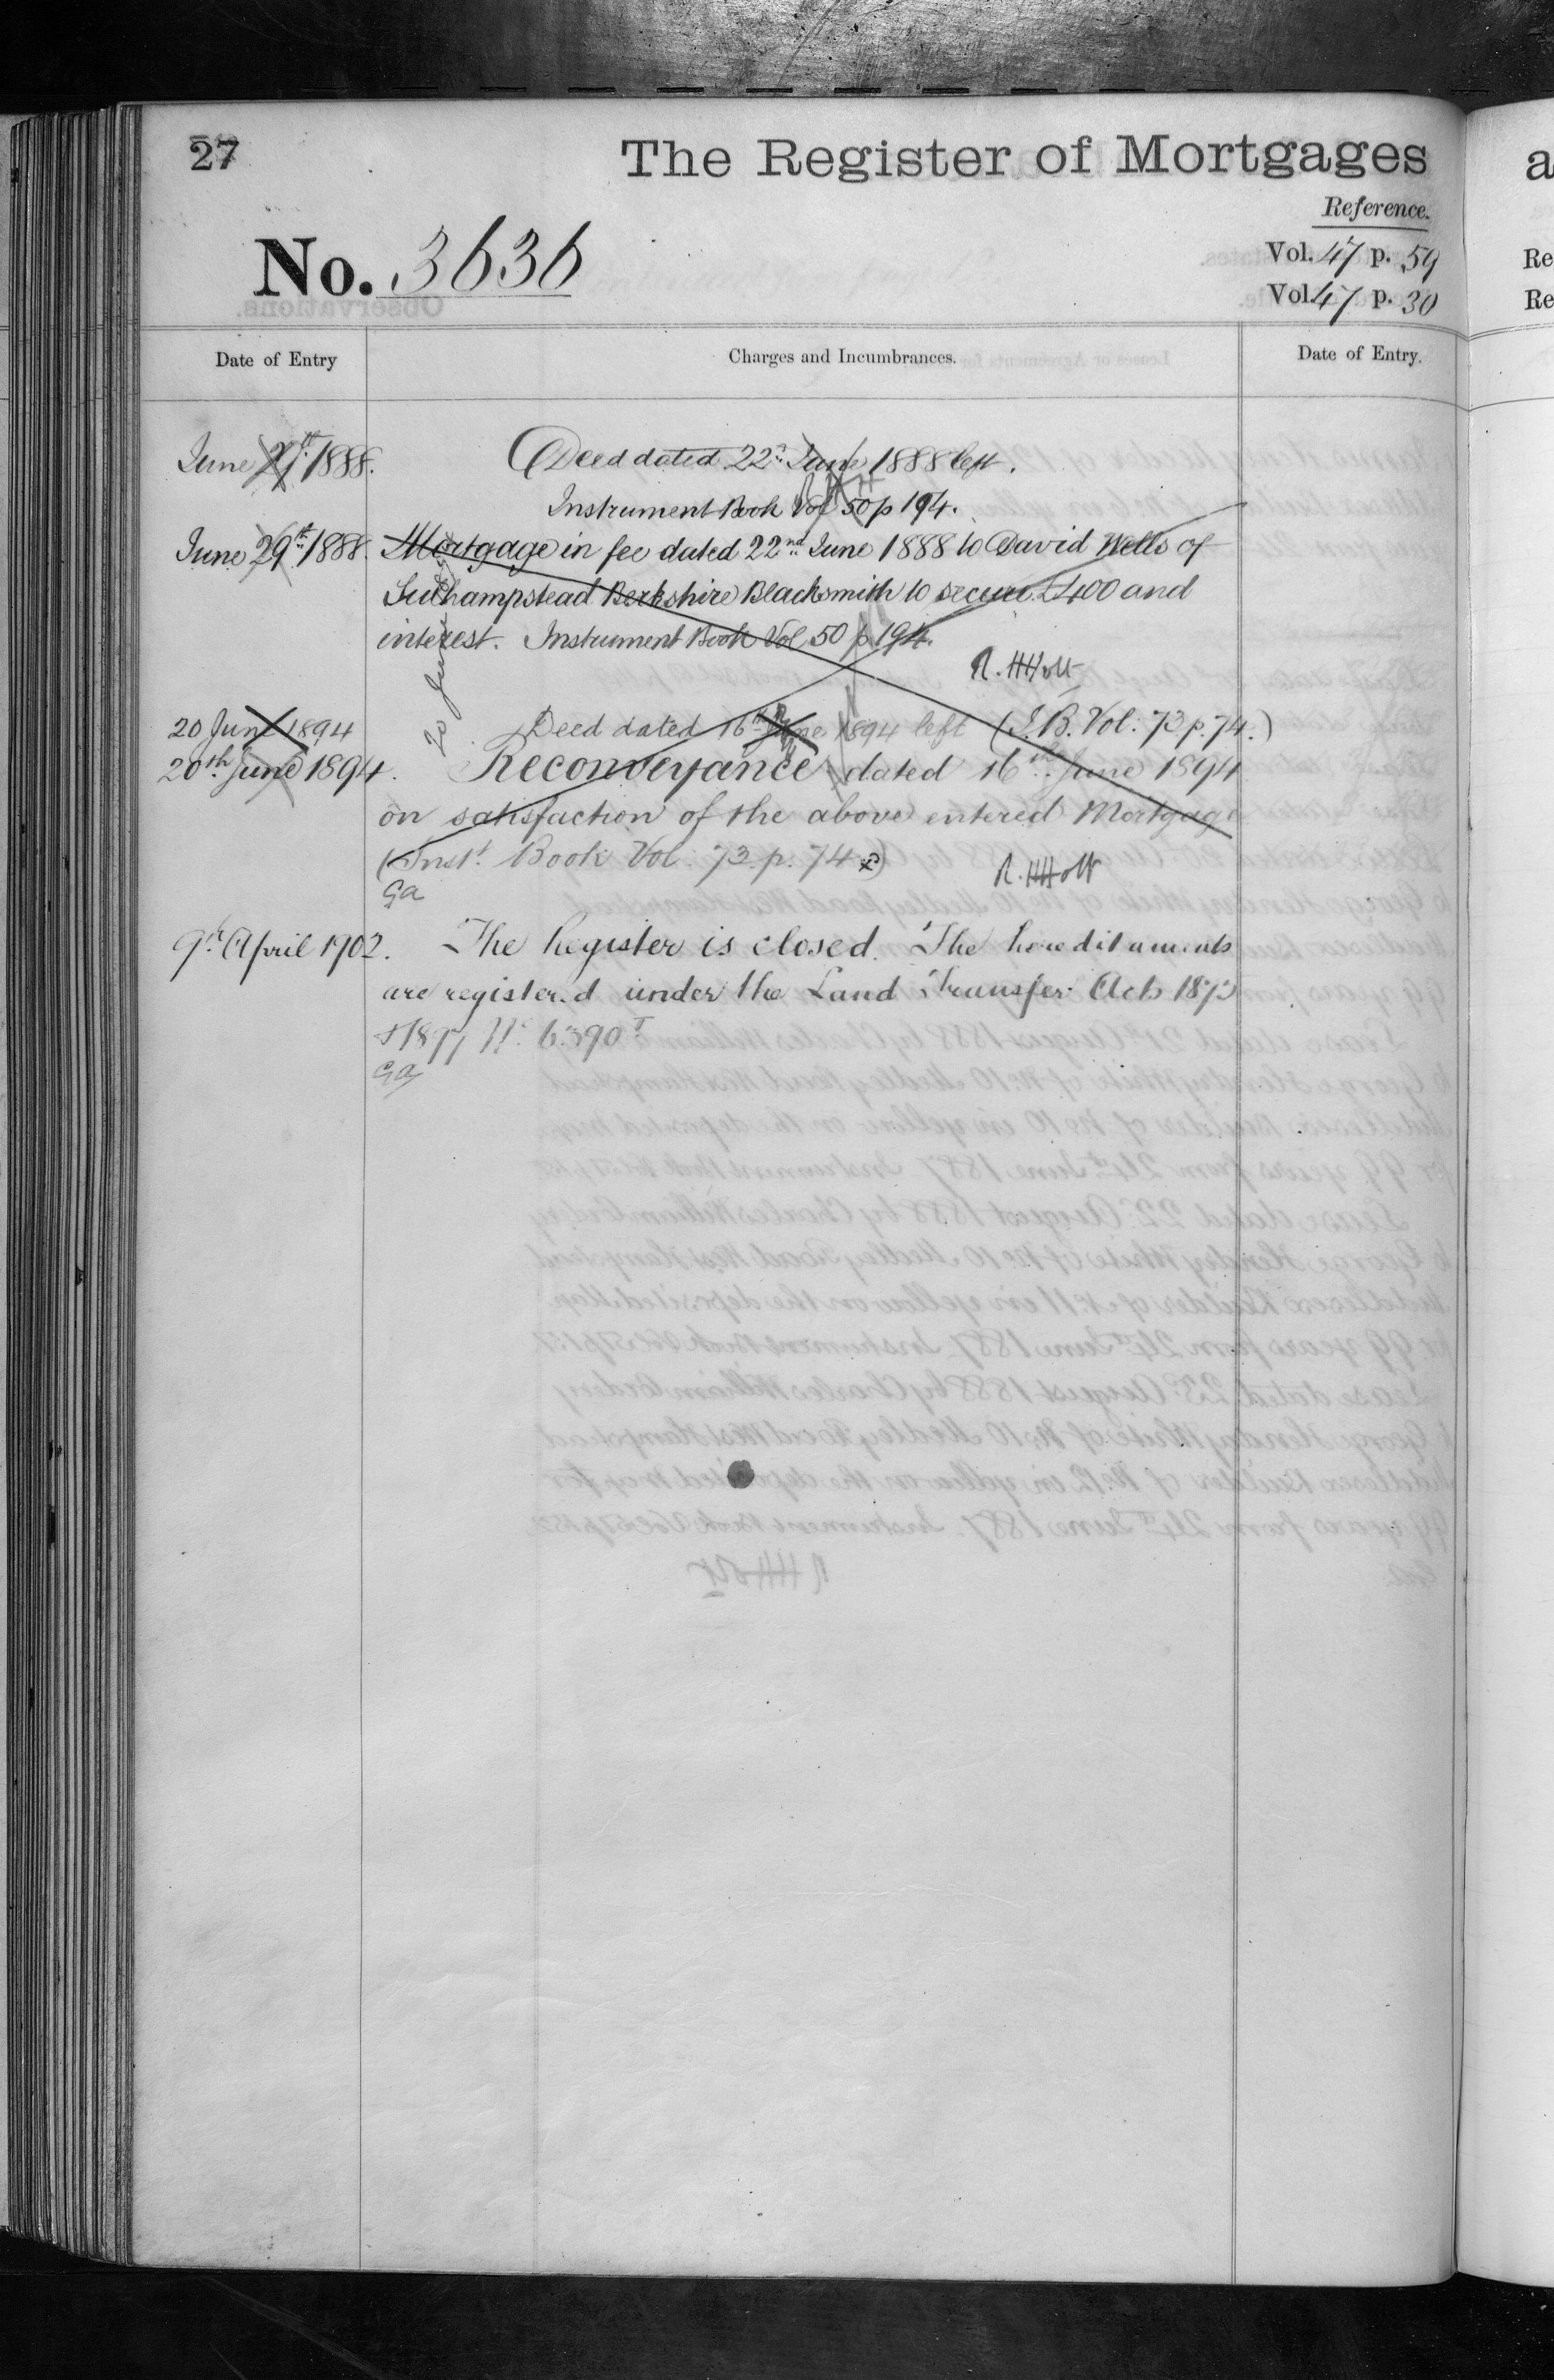 27
The Register of Mortgages
Reference.
No. 3636
Vol. 47 p. 59
Vol. 47 p. 30
Date of Entry
Charges and Incumbrances.
Date of Entry.
June 29th 1888.
Deed dated 22nd June 1888 left.
Instrument Book Vol 50 p 194.
June 29th 1888. Mortgage in fee dated 22nd June 1888 to David Wells of
Sulhampstead Berkshire Blacksmith to secure £400 and
interest. Instrument Book Vol 50 p 194.
R. H Holt
20 June 1894 Deed dated 16th June 1894 left (I.B. Vol: 73 p. 74.)
20th June 1894. Reconveyance dated 16th June 1894
on satisfaction of the above entered Mortgage
(Inst. Book Vol: 73 p. 74)
R. H Holt
Ga
9th April 1902. The Register is closed. The hereditaments
are registered under the Land Transfer Acts 1875
& 1897 No. 6390
Ga
a
Re
Re